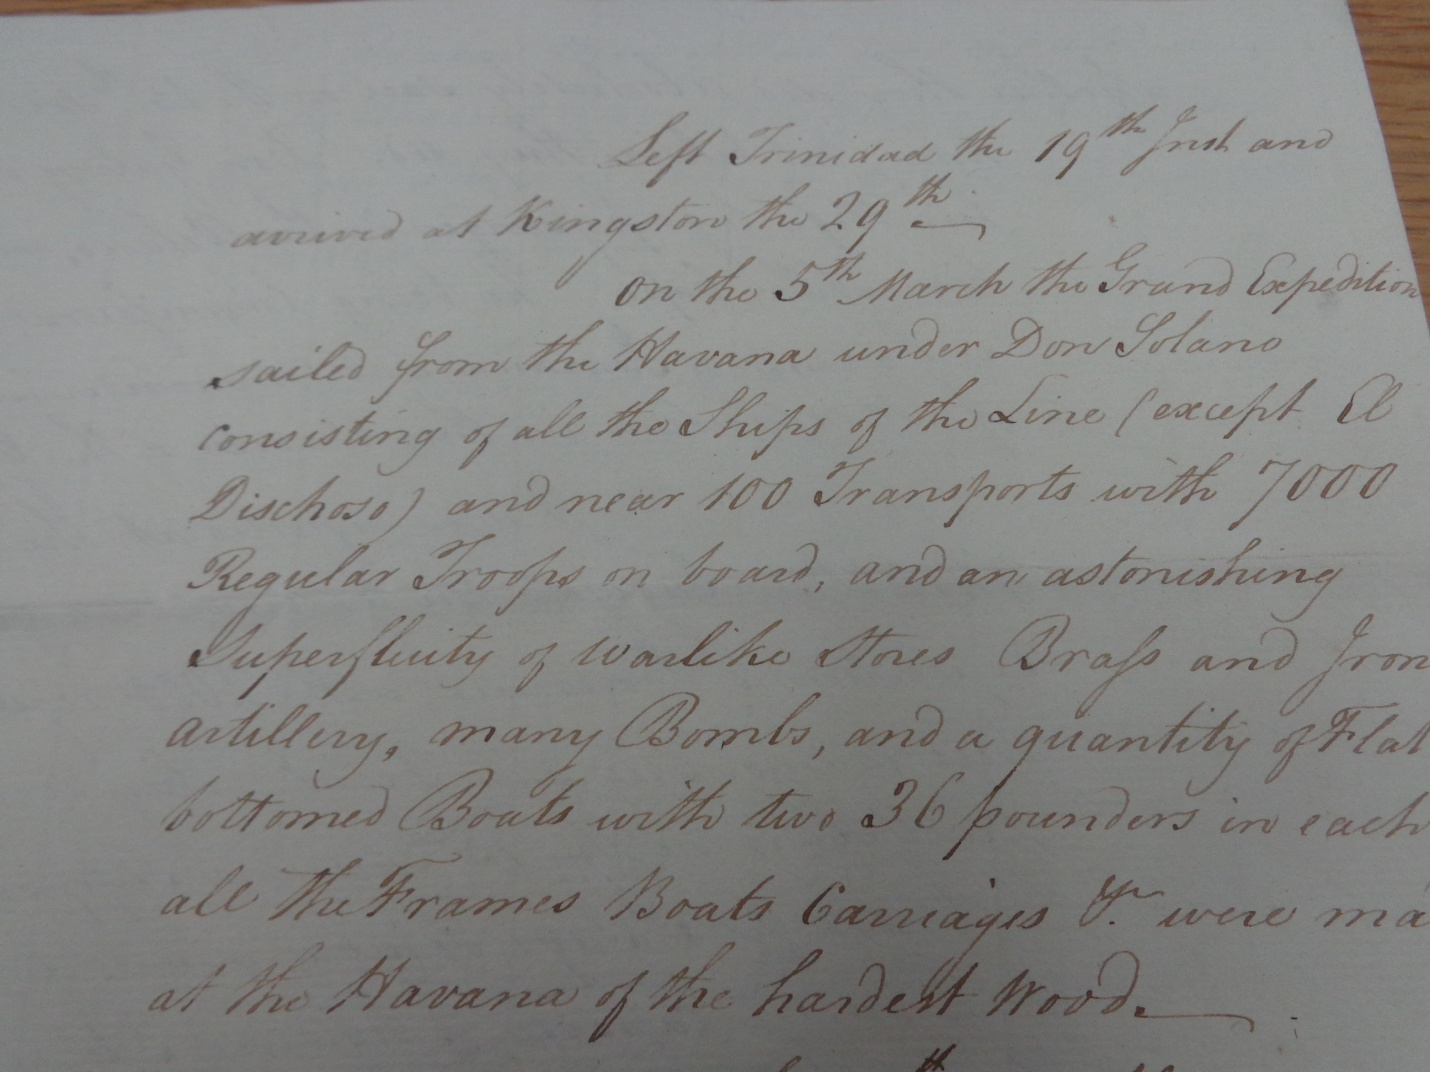 Left Trinidad the 19th Inst and
arrived at Kingston the 29th
On the 5th March the Grand Expedition
sailed from the Havana under Don Solano
consisting of all the Ships of the Line (except El
Dischoso) and near 100 Transports with 7000
Regular Troops on board, and an astonishing
Superfluity of warlike Stores Brass and Iron
artillery, many Bombs, and a quantity of Flat
bottomed Boats with two 36 pounders in each
all the Frames Boats Carriages &c. were ma
at the Havana of the hardest Wood.